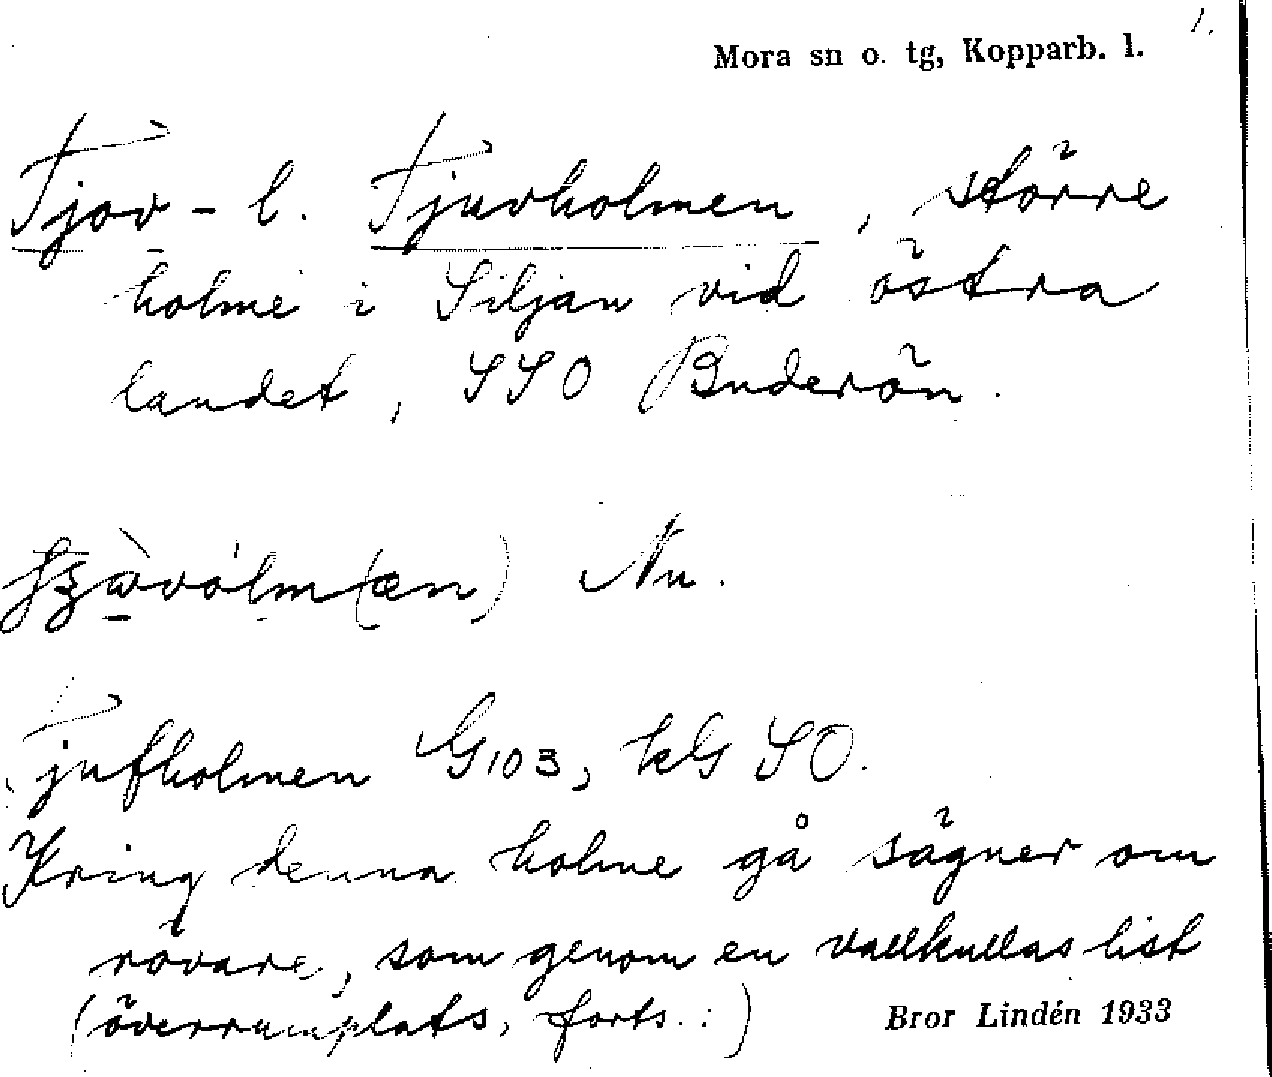 1.
Mora sn o. tg, Kopparb. l.
Tjov- l. Tjuvholmen, större
holme i Siljan vid östra
landet, SSO Buderön.
Nu.
Tjufholmen G103, kG SO.
Kring denna holme gå sägner om
rövare, som genom en vallkullas list
(överrumplats, forts.:)
Bror Lindén 1933